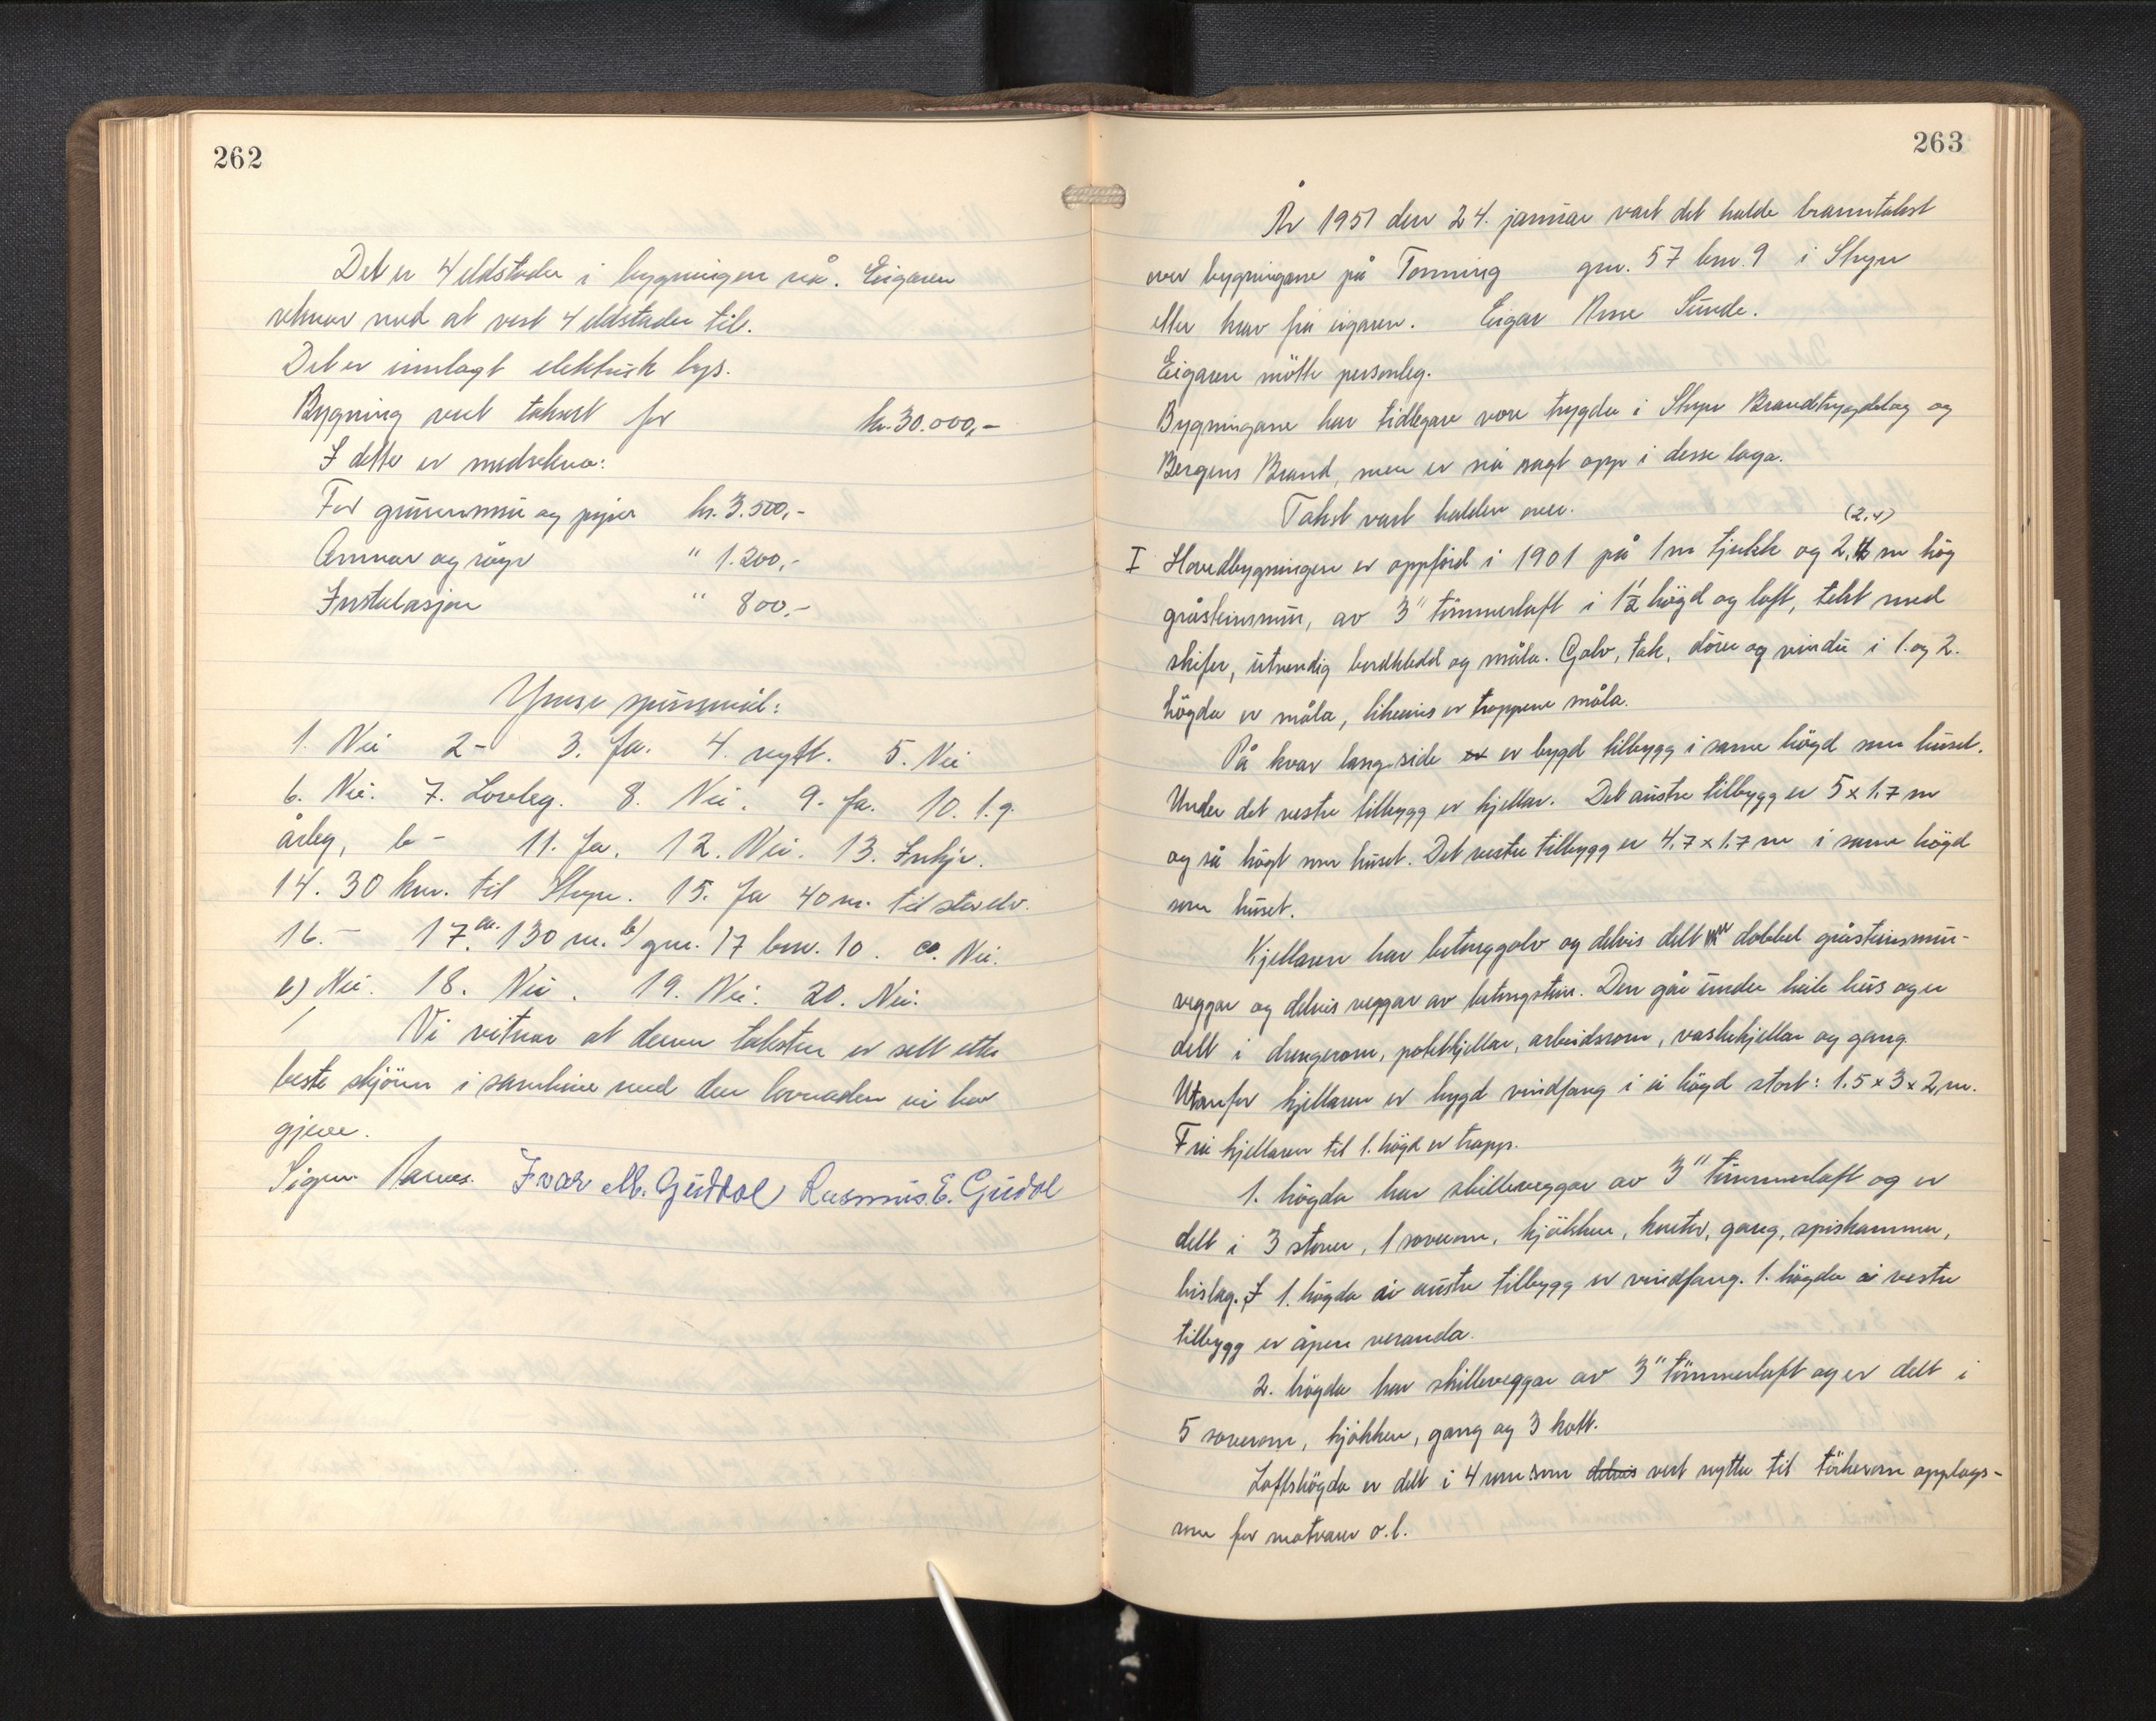 262
Det er 4 eldstader i bygningen nå. Eigaren
reknar med at vert 4 eldstader til.
Det er innlagt elektrisk lys.
Bygning vert taksert for kr. 30.000,-
I dette er medrekna:
For grunnmur og piper kr. 3.500,-
Omnar og røyr " 1.200,-
Instalasjon " 800,-
Ymse spursmål:
1. Nei 2- 3. Ja. 4. nytt. 5. Nei
6. Nei. 7. Loveleg. 8. Nei. 9. Ja. 10. 1. g.
årleg, b- 11. Ja. 12. Nei. 13. Inkje.
14. 30 km. til Stryn. 15. Ja 40 m. til storelv.
16. - 17. a. 130 m. b) gnr. 17 bnr. 10. c. Nei.
e) Nei. 18. Nei. 19. Nei. 20. Nei.
Vi vitnar at denne taksten er sett etter
beste skjönn i samhøve med den lovnaden vi har
gjeve.
Sigm. Ivar M. Guddal Rasmus E. Guddal
263
År 1951 den 24. januar vart det halde branntakst
over bygningane på Tonning gnr. 57 bnr. 9 i Stryn
etter krav frå eigaren. Eigar Arne Sunde.
Eigaren mötte personleg.
Bygningane har tidlegare vore trygda i Stryn Brandtrygdelag og
Bergens Brand, men er nå sagt opp i desse laga.
Takst vart halden over.
(2,4)
I Hovedbygningen er oppförd i 1901 på 1 m tjukk og 2,4 m hög
gråsteinsmur, av 3" tömmerlaft i 1½ högd og loft, tekt med
skifer, utvendig bordkledd og måla. Golv, tak, dörer og vindu i 1. og 2.
högda er måla, likeeins er trappene måla.
På kvar langside er bygd tilbygg i same högd som huset.
Under det vestre tilbygg er kjellar. Det austre tilbygg er 5 x 1.7 m
og så högt som huset. Det vestre tilbygg er 4.7 x 1.7 m i same högd
som huset.
Kjellaren har betonggolv og delvis delt m dobbel gråsteinsmur-
veggar og delvis veggar av betongstein. Den går under heile hus og er
delt i drengerom, potetkjellar, arbeidsrom, vaskekjellar og gang.
Utanfor kjellaren er bygd vindfang i ei högd stort: 1.5 x 3 x 2 m.
Frå kjellaren til 1. högd er trapp.
1. högda har skilleveggar av 3" tömmerlaft og er
delt i 3 stover, 1 soverom, kjökken, kontor, gang, spiskammer,
bislag. I 1. högda åi austre tilbygg er vindfang. 1. högda åi vestre
tilbygg er åpen veranda.
2. högda har skilleveggar av 3" tömmerlaft og er delt i
5 soverom, kjökken, gang og 3 kott.
Loftshögda er delt i 4 rom som delvis vert nytta til törkerom opplags-
rom for matvarer o.l.